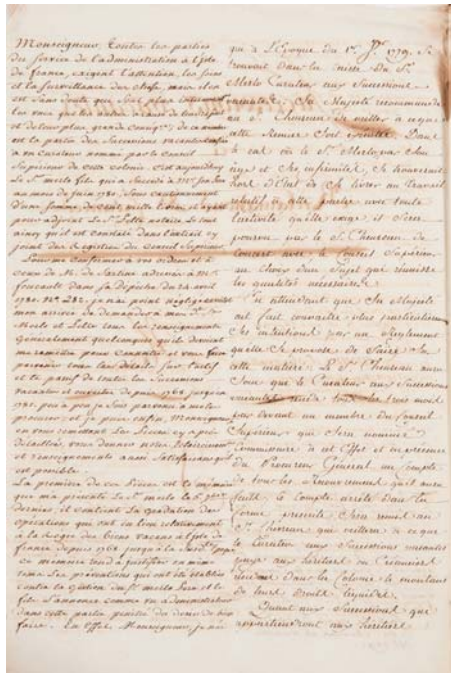 Monseigneur, toutes les parties
du service de l'administration à l'Isle
de france, exigent l'attention, les soins
et la surveillance des chefs, mais il en
est sans doute qui sont plus
les unes que les autres à cause de
et de leur plus grande
est la partie des Successions vacantes
à un curateur nommé par le conseil
Supérieur de cette colonie. C'est aujourd'huy
Le Sr. merlo fils qui a succédé à Mr.
au mois de juin 1780, sous cautionnement
d'une somme de cent mille livres, et ayant
pour adjoint Le Sr. notaire Le tout
ainsy qu'il est constaté dans l'extrait cy
joint des Registres du conseil Supérieur
Pour me conformer à vos ordres et à
ceux de M. de Sartine adressés à Mr.
foucault dans sa dépêche du 24 avril
1780. No. 282. je n'ai point négligé
mon arrivée de demander à
Merlo et tous les renseignements
généralement quelconques qu'ils devaient
me remettre pour connaître et vous faire
parvenir tous les détails sur l'actif
et le passif de toutes les Successions
vacantes et depuis 1768 jusqu'en
1781. peu à peu je suis parvenu à me les
procurer et je puis enfin, Monseigneur
en vous remettant Les pièces cy après
détaillées, vous donner
et renseignements aussi satisfaisants qu'il
est possible.
La première de ces pièces est le mémoire
que m'a présenté Le Sr. merlo le
dernier il contient La gradation des
opérations qui ont eu lieu relativement
à la Régie des biens vacans à l'isle de
france depuis 1768 jusqu'à
ce mémoire tend à justifier en même
tems Les
contre la gestion du Sr. merlo père et
fils. L'annonce comme un administrateur
dans cette partie pénétré du désir de bien
faire. En Effet, Monseigneur, je n'ai
qui à L'Epoque du 1er. 1779. se
trouvait dans la caisse du Sr.
Merlo Curateur aux Successions
vacantes. Sa Majesté recommande
au Sr. Chevreau de veiller à ce que
cette Remise Soit Dans
le cas où le Sr. Merlo par Son
âge et Ses infirmités, se trouverait
hors d'Etat de se livrer au travail
relatif à cette partie avec toute
l'activité qu'elle exige, il Sera
pourvu par le Sr. Chevreau de
Concert avec le Conseil Supérieur
au choix d'un Sujet qui réunisse
les qualités nécessaires.
En attendant que Sa Majesté
ait fait connaître plus particulièrement
Ses intentions par un Reglement
qu'elle Se propose de faire Sur
cette matière. Le Sr. Chevreau aura
Soin que le Curateur aux Successions
vacantes rende tous les trois mois
par devant un membre du Conseil
Supérieur qui Sera nommé
Commissaire à cet Effet et en présence
du Procureur Général un Compte
de tous les Recouvrements qu'il aura
faits, le Compte arrêté dans la
forme prescrite Sera remis au
Sr. Chevreau qui veillera à ce que
le Curateur aux Successions vacantes
paye aux héritiers ou Créanciers
résidant dans la Colonie le montant
de leurs droits liquidés.
Quant aux Successions qui
appartiendront aux héritiers